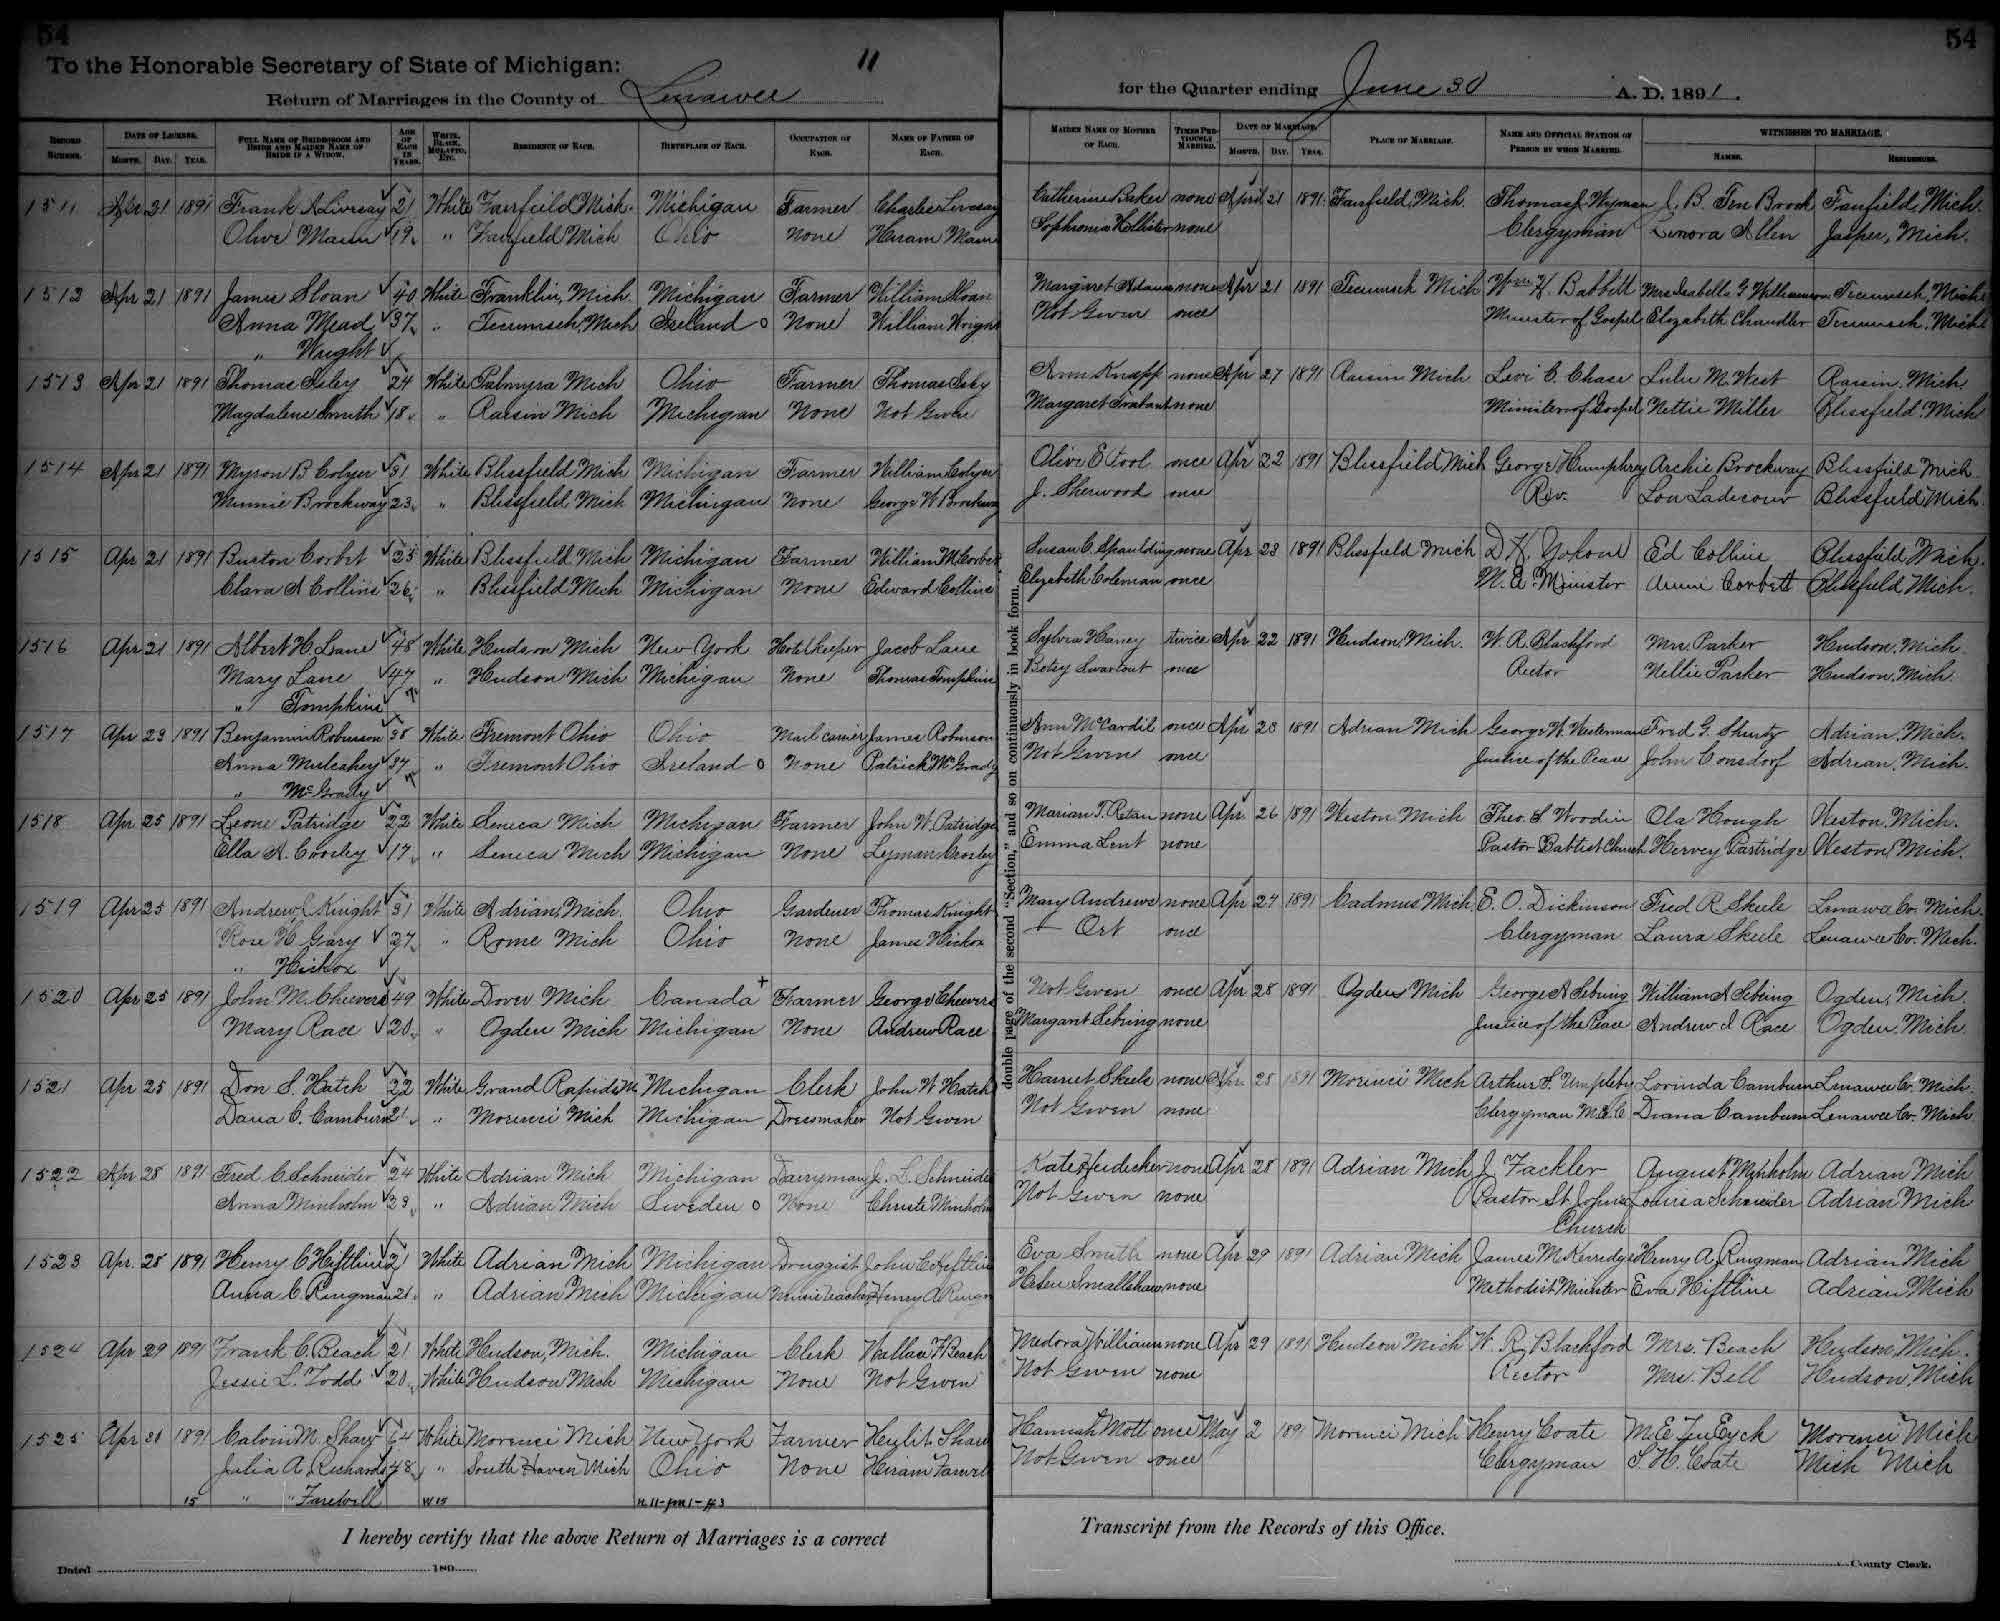 54
To the Honorable Secretary of State of Michigan:
11
Return of Marriages in the County of Lenawee
Record Number.
Date of License.
Month. Day. Year.
Full Name of Bridegroom and Bride and Maiden Name of Bride if a Widow.
Age of Each in Years.
White, Black, Mulatto, Etc.
Residence of Each.
Birthplace of Each.
Occupation of Each.
Name of Father of Each.
1511 Apr 21 1891 Frank A Livesay 21 White Fairfield Mich. Michigan Farmer Charles Livesay
Olive 19 " Fairfield Mich Ohio None Hiram
1512 Apr 21 1891 James Sloan 40 White Franklin, Mich. Michigan Farmer William Sloan
Anna Mead 37 " Tecumseh, Mich Ireland None William Wright
" Wright
1513 Apr 21 1891 Thomas Isley 24 White Palmyra Mich Ohio Farmer Thomas
Magdalene Smith 18 " Raisin Mich Michigan None Not Given
1514 Apr 21 1891 Myron B Colyer 31 White Blissfield Mich Michigan Farmer William Colyer
Minnie Brockway 23 " Blissfield Mich Michigan None George W Brockway
1515 Apr 21 1891 Burton Corbit 25 White Blissfield, Mich Michigan Farmer William M Corbet
Clara A Collins 26 " Blissfield Mich Michigan None Edward Collins
1516 Apr 21 1891 Albert H. Lane 48 White Hudson Mich New York Hotelkeeper Jacob Lane
Mary Lane 47 " Hudson Mich Michigan None Thomas Tompkins
" Tompkins
1517 Apr 23 1891 Benjamin Robinson 38 White Fremont Ohio Ohio Mail carrier James Robinson
Anna Mulcahey 37 " Fremont Ohio Ireland None Patrick McGrady
" McGrady
1518 Apr 25 1891 Leone Patridge 22 White Seneca Mich Michigan Farmer John W. Patridge
Ella A. Crosley 17 " Seneca Mich Michigan None Lyman Crosley
1519 Apr 25 1891 Andrew J Knight 31 White Adrian, Mich. Ohio Gardener Thomas Knight
Rose H. Gary 27 " Rome Mich Ohio None James Hickox
" Hickox
1520 Apr 25 1891 John M. Cheevers 49 White Dover Mich Canada Farmer George Cheevers
Mary Race 20 " Ogden Mich Michigan None Andrew Race
1521 Apr 25 1891 Don S. Hatch 22 White Grand Rapids M Michigan Clerk John W Hatch
Dana C. Camburn 21 " Morenci Mich Michigan Dressmaker Not Given
1522 Apr 28 1891 Fred C. Schneider 24 White Adrian Mich Michigan Dairyman J. L. Schneider
Anna Minholm 23 " Adrian Mich Sweden None Christe Minholm
1523 Apr. 28 1891 Henry C Heftline 21 White Adrian Mich Michigan Druggist John C Heftline
Anna C. Ringman 21 " Adrian Mich Michigan Music Teacher Henry A Ringm
1524 Apr 29 1891 Frank C. Beach 21 White Hudson, Mich. Michigan Clerk Wallace F Beach
Jessie L. Todd 20 White Hudson Mich Michigan None Not Given
1525 Apr 30 1891 Calvin M. Sharp 64 White Morenci Mich New York Farmer
Julia A. Richards 48 " South Haven Mich Ohio None Hiram Farwell
15 " " Farewell W 15
I hereby certify that the above Return of Marriages is a correct
Dated 189
54
for the Quarter ending June 30 A. D. 1891.
Maiden Name of Mother of Each.
Times Previously Married.
Date of Marriage.
Month. Day. Year.
Place of Marriage.
Name and Official Station of Person by whom Married.
Witnesses to Marriage.
Names. Residences.
double page of the second "Section," and so on continuously in book form.
Catherine Baker none April 21 1891 Fairfield, Mich. Thomas J. Wyman J. B. Ten Brook Fairfield, Mich.
Sophronia Hollister none Clergyman Lenora Allen Jasper, Mich.
Margaret Adams none Apr 21 1891 Tecumseh Mich Wm H. Babbitt Mrs Isabella G Williamson Tecumseh, Mich
Not Given once Minister of Gospel Elizabeth Chandler Tecumseh, Mich
Ann Knapp none Apr 27 1891 Raisin Mich Levi C. Chase Lulu M. West Raisin. Mich
Margaret none Minister of Gospel Nettie Miller Blissfield, Mich
Olive E Tool once Apr 22 1891 Blissfield Mich George Humphrey Archie Brockway Blissfield Mich.
J. Sherwood once Rev. Lon Blissfield Mich.
Susan C. Spaulding none Apr 23 1891 Blissfield Mich D. H. Ed Collins Blissfield Mich.
Elizabeth Coleman once M. E. Minister Anna Corbett Blissfield Mich.
Sylvia Haney twice Apr 22 1891 Hudson, Mich. W. R. Blachford Mrs. Parker Hudson, Mich.
Betsy Swartout once Rector Nellie Parker Hudson, Mich.
Ann McCardil once Apr 23 1891 Adrian Mich George W. Westerman Fred G. Shurtz Adrian, Mich.
Not Given once Justice of the Peace John Consdorf Adrian, Mich.
Marian T. Retan none Apr 26 1891 Weston Mich Theo. S Woodin Ola Hough Weston, Mich.
Emma Lent none Pastor Baptist Church Hervey Partridge Weston, Mich.
Mary Andrews none Apr 24 1891 Cadmus Mich. E. O. Dickinson Fred R Skeele Lenawee Co. Mich.
Ort once Clergyman Laura Skeele Lenawee Co. Mich.
Not Given once Apr 28 1891 Ogden Mich George A Sebring William A Sebring Ogden, Mich.
Margaret Sebring none Justice of the Peace Andrew J Race Ogden, Mich.
Harriet Skeels none Apr 28 1891 Morenci Mich Arthur F. Umpleby Lorinda Camburn Lenawee Co. Mich
Not Given none Clergyman M.E.C Diana Camburn Lenawee Co. Mich
Kate Heidecker none Apr 28 1891 Adrian Mich J Fackler August Minholm Adrian Mich
Not Given none Pastor St Johns Louisa Schneider Adrian Mich
Church
Eva Smith none Apr 29 1891 Adrian Mich James M Kerredge Henry A. Ringman Adrian Mich
Helen Smallshaw none Methodist Minister Eva Heftline Adrian Mich
Nadora Williams none Apr 29 1891 Hudson Mich W. R. Blachford Mrs. Beach Hudson, Mich.
Not Given none Rector Mrs. Bell Hudson, Mich
Hannah Mott once May 2 1891 Morenci Mich Henry Coate M.E TenEyck Morenci Mich
Not Given once Clergyman S. H. Coate Mich Mich
Transcript from the Records of this Office.
County Clerk.